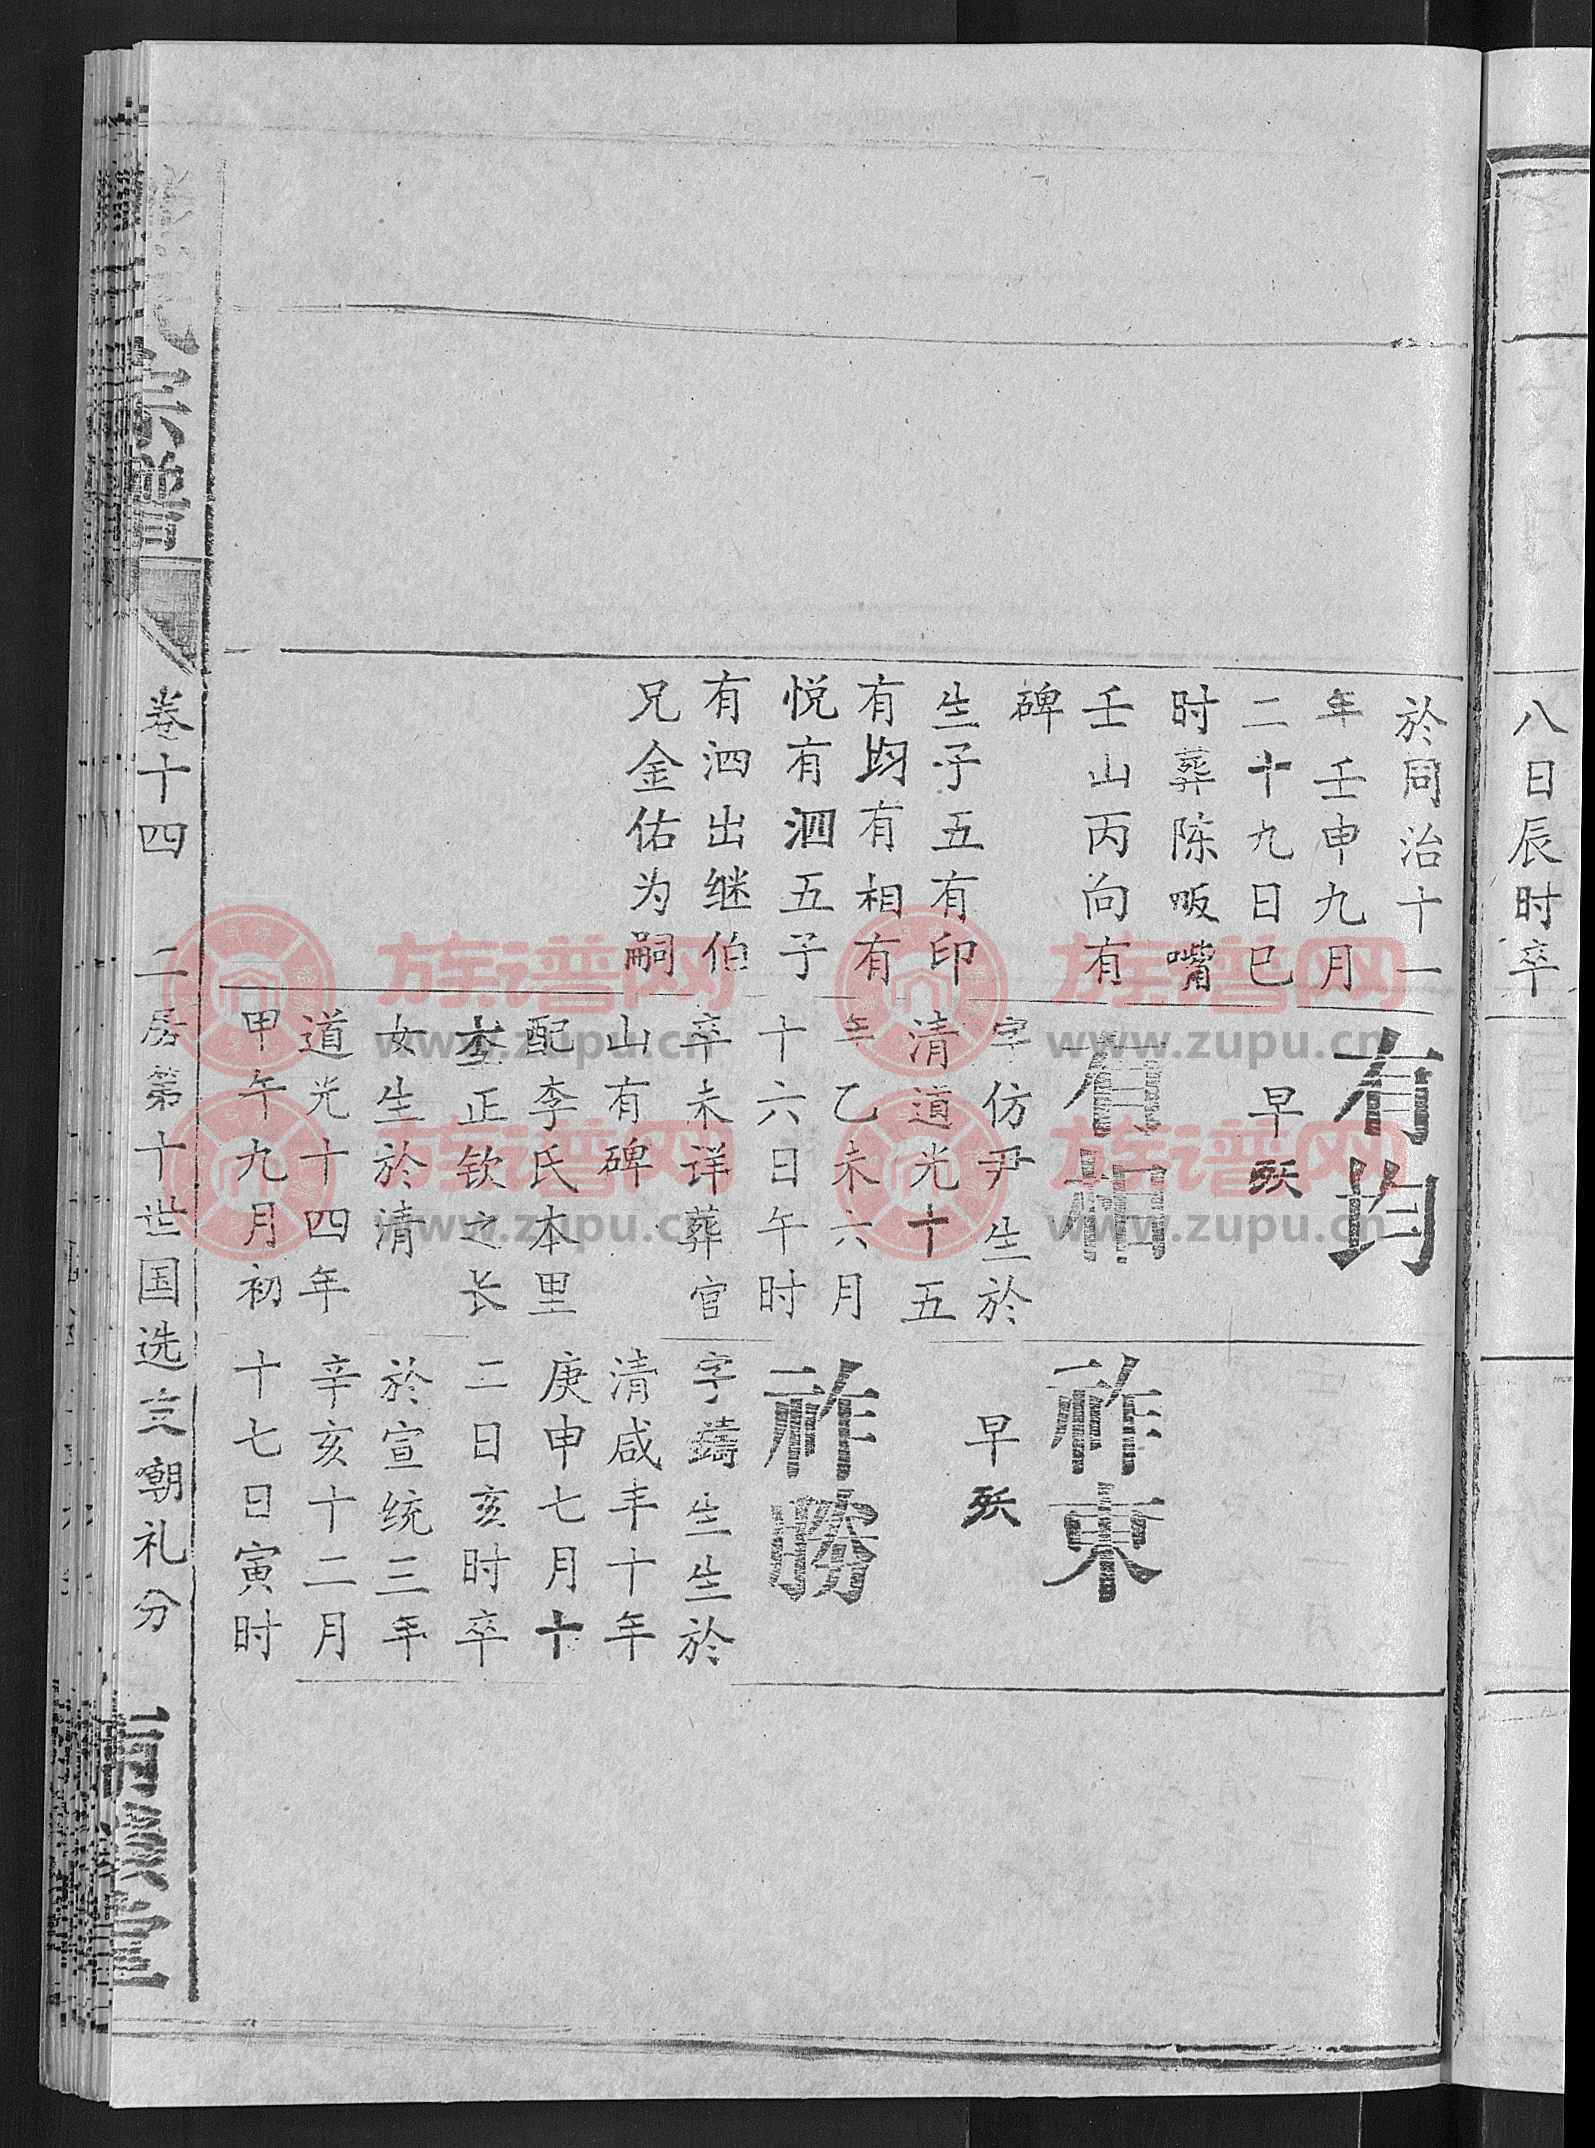 八日辰时卒
於同治十一
年壬申九月
二十九日巳
时葬陈畈嘴
壬山丙向有
碑
生子五有印
有均有相有
悦有泗五子
有泗出继伯
兄金佑为嗣
有均
早殀
有相
字仿尹生於
清道光十五
年乙未六月
十六日午时
卒未详葬官
山有碑
配李氏本里
李正钦之长
女生於清
道光十四年
甲午九月初
祚東
早殀
祚勝
字鑄生生於
清咸丰十年
庚申七月十
二日亥时卒
於宣统三年
辛亥十二月
十七日寅时
氏宗譜
卷十四 二房第十世国选立朝礼分
堂
族谱网
www.zupu.cn
族谱网
www.zupu.cn
族谱网
www.zupu.cn
族谱网
www.zupu.cn